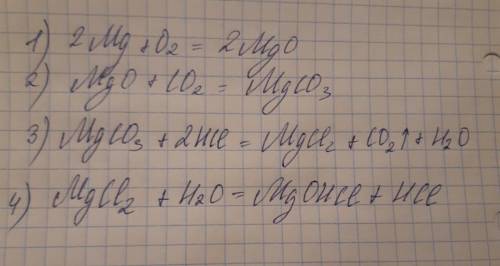 1) 2Mg + O₂ = 2MgO
2) MgO + CO₂ = MgCO₃
3) MgCO₃ + 2HCl = MgCl₂ + CO₂↑ + H₂O
4) MgCl₂ + H₂O = MgOHCl + HCl